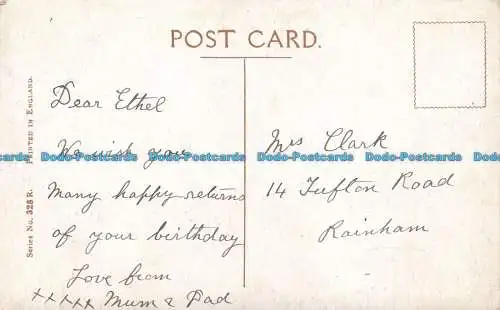 POST CARD.
Dear Ethel
We wish you
Many happy returns
of your birthday
Love from
xxxxx Mum & Dad
Mrs Clark
14 Tufton Road
Rainham
Series No. 328 R. PRINTED IN ENGLAND.
Dodo-Postcards Dodo-Postcards Dodo-Postcards Dodo-Postcards
Dodo-Postcards Dodo-Postcards Dodo-Postcards Dodo-Postcards